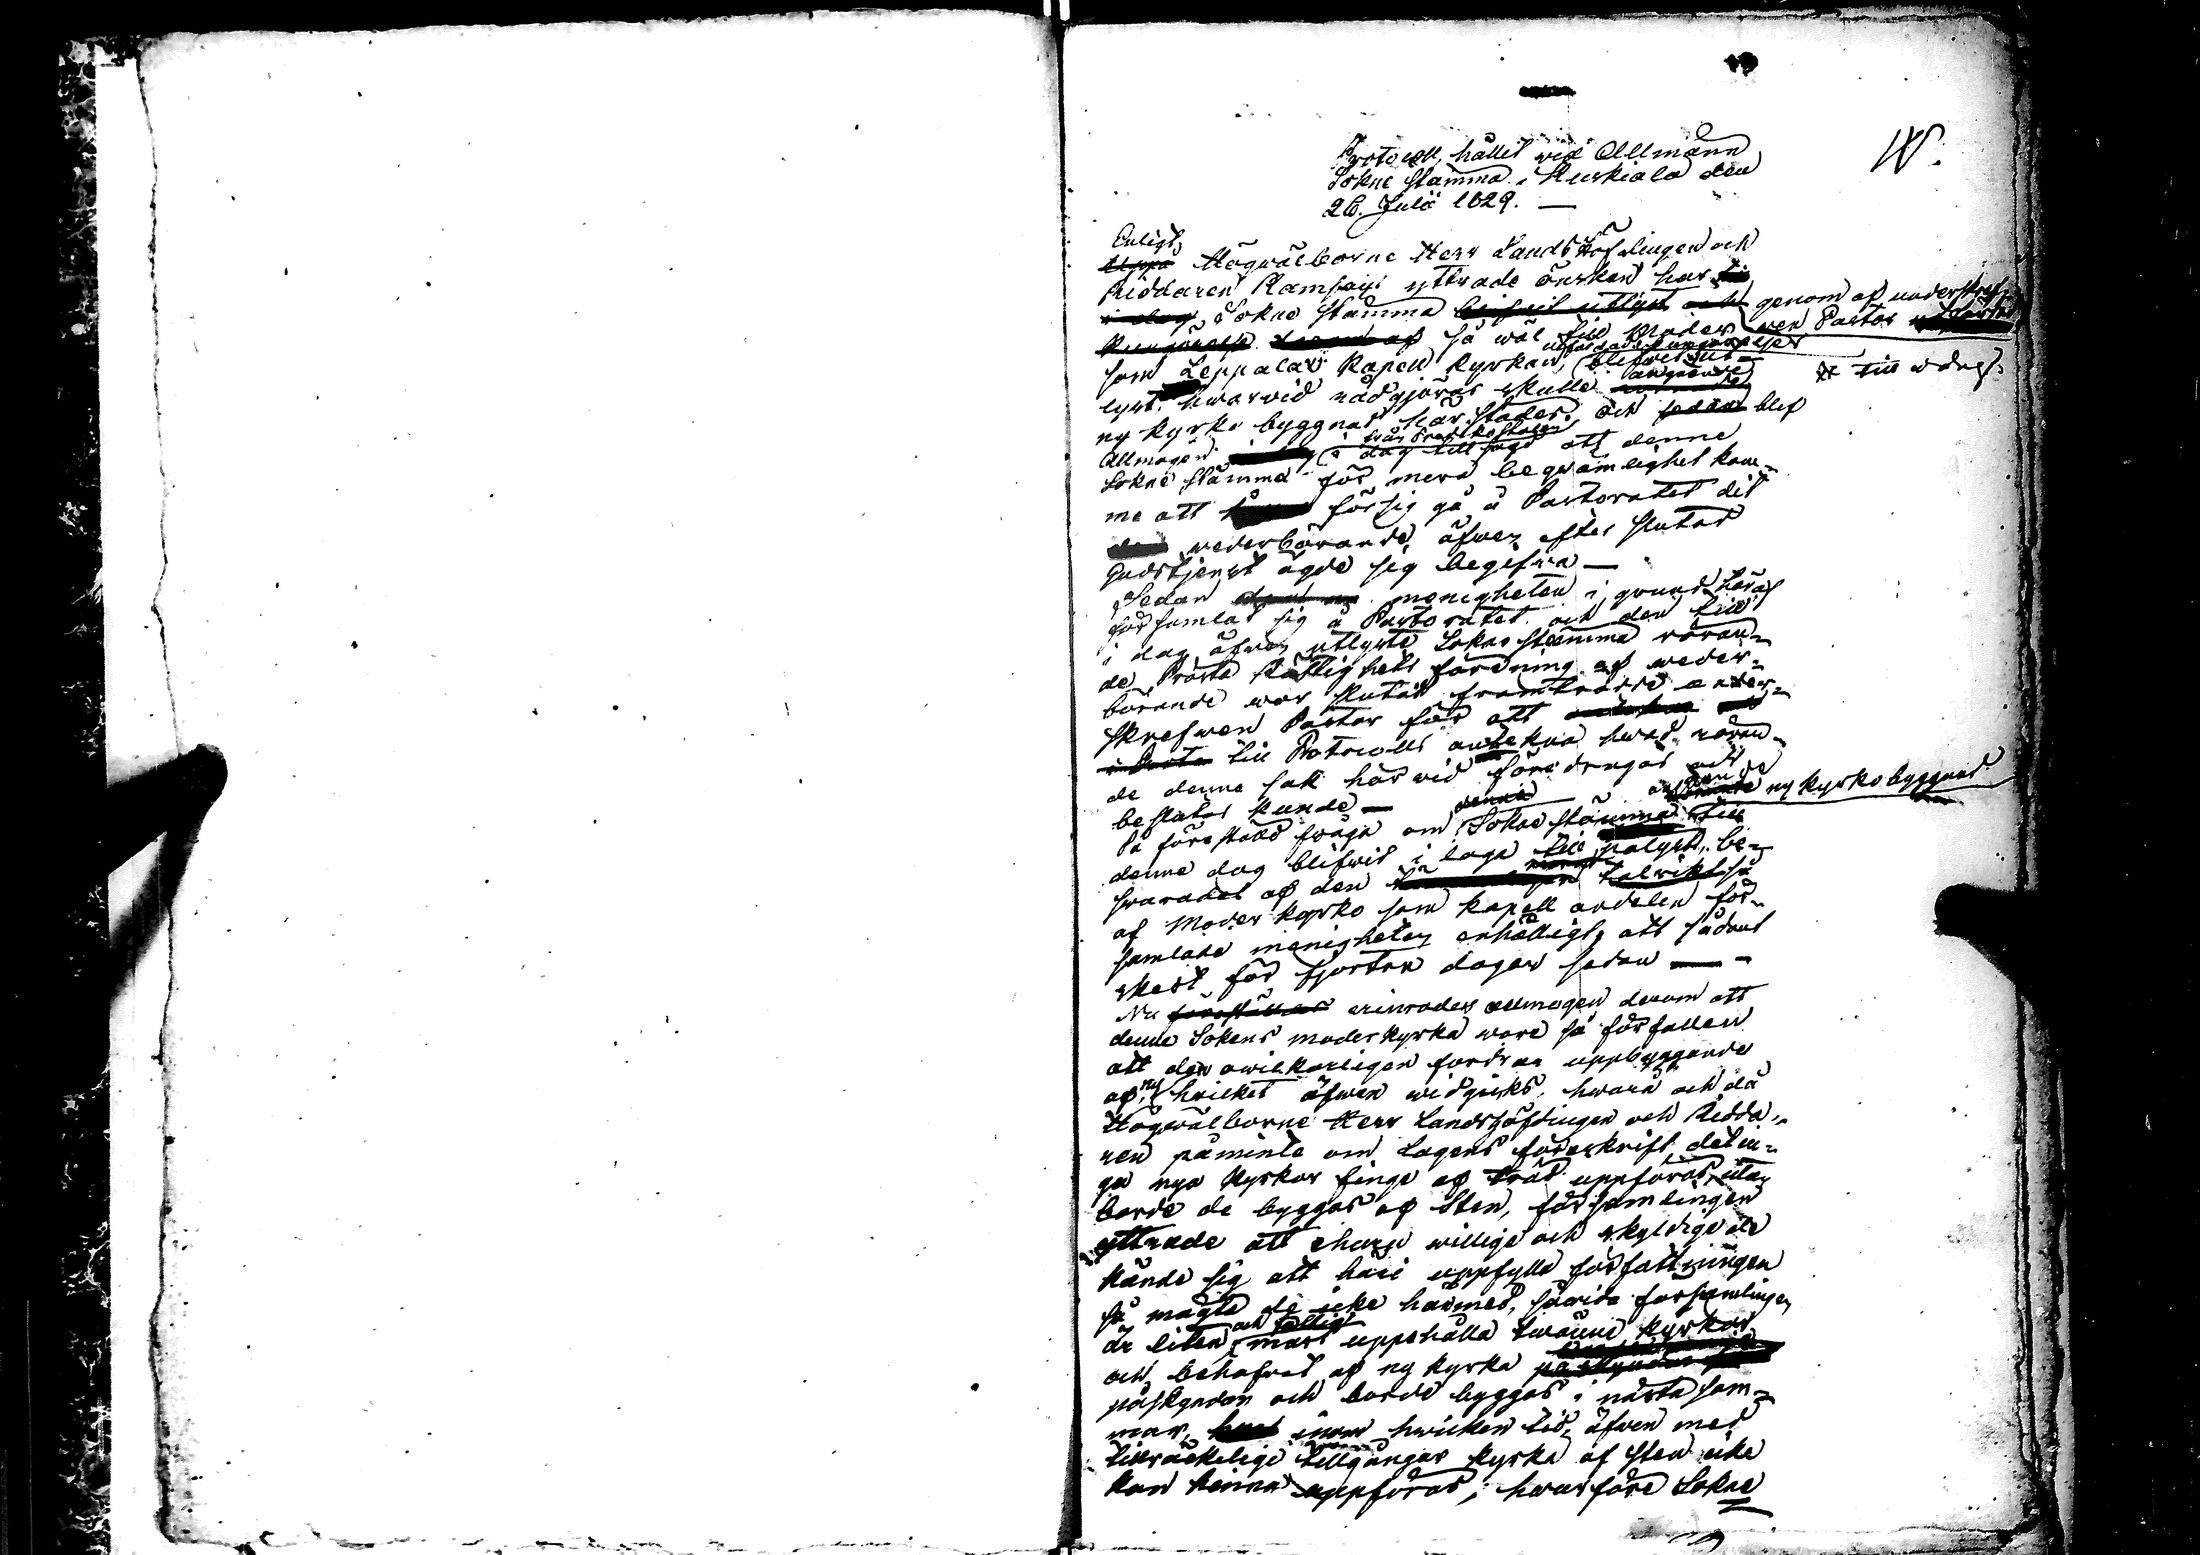 Protocoll, hållet vid Allmänn
Sokne stämma i Ruskiala den
26. Julii 1829. —
Enligt
Högwälborne Herr Landshöfdingen och
Riddaren Ramsays yttrade önskan har
Sokne stämma genom af underskref-
så wäl till Moder wen Pastor
som Leppälax Kapell kyrkan, blifwit ut-
lyst, hwarwid rådgjöras skulle angående
ny kyrko byggnad här städes, och blef
Allmogen från Predikostolen i dag tillsagd att denne
Sokne stämma för mera beqwämlighet kom-
me att för sig gå å Pastoratet dit
wederbörande, äfwen efter slutad
Gudstjenst ägde sig begifwa —
Sedan menigheten i grund häraf
församlat sig å Pastoratet och den till
i dag äfwen utlyste Sokne stämma röran-
de Prosta Rättighets förening af weder-
börande war slutad framträdde under-
skrefwen Pastor för att
till Protocolls anteckna hwad röran-
de denna sak här vid föredragas och
beslutas kunde —
På förestäld fråga om denna Sokne stämma angående ny kyrko byggnad till
denne dag blifwit i laga tid pålyst, be-
swarades af den talrikt så
af Moder kyrko som kapell andelen för-
samlade menigheten enhälligt, att sådant
skedt för fjorton dagar sedan —
Nu erinrades allmogen derom att
denne Sokens moderkyrka wore så förfallen
att den owilkorligen fordrar uppbyggande
af ny, hwilket äfwen widgicks, hwarå och då
Högwälborne Herr Landshöfdingen och Ridda-
ren påminte om Lagens föreskrift, det in-
ga nya kyrkor finge af träd uppföras, utan
borde de byggas af Sten, församlingen
yttrade att ehuru willige och skyldige de
kände sig att häri uppfylla författningen
så mågte de icke härmed, såwida församlingen
är liten och fattig, mast uppehålla twänne kyrkor
och behofwet af ny kyrka
påskyndar och borde byggas i nästa som-
mar, inom hwilken tid, äfwen med
tillräckelige tillgångar kyrka af sten icke
kan kunna uppföras, hwarföre Sokne